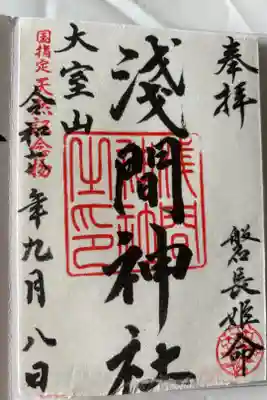 奉拝
磐長姫命
浅間神社
大室山
国指定天然記念物
令和五年九月八日